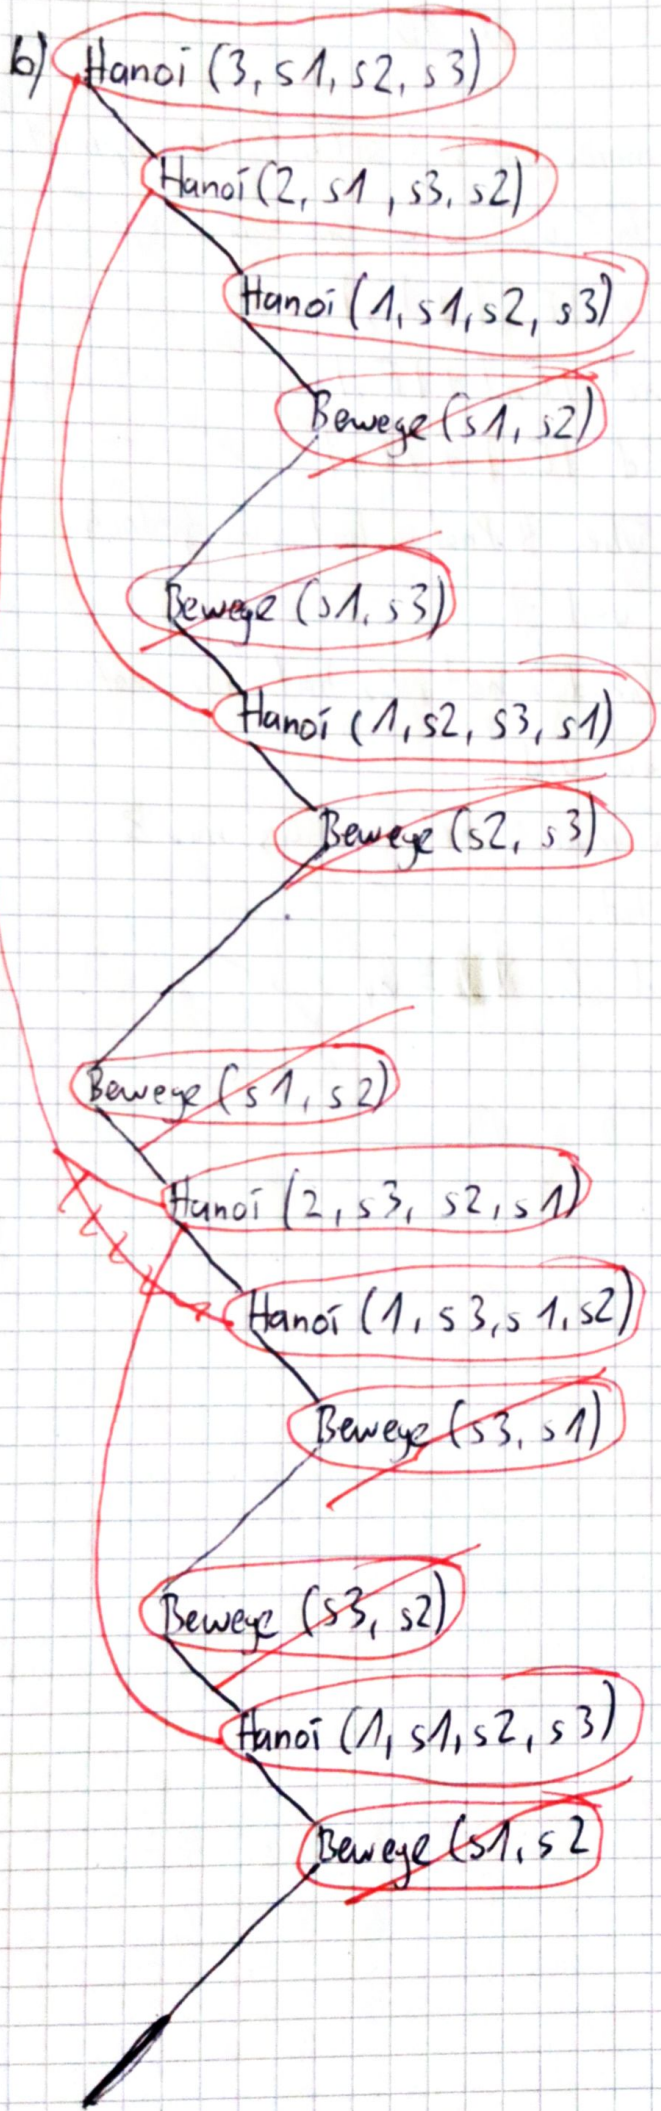 b) Hanoi (3, s1, s2, s3)
Hanoi (2, s1, s3, s2)
Hanoi (1, s1, s2, s3)
Bewege (s1, s2)
Bewege (s1, s3)
Hanoi (1, s2, s3, s1)
Bewege (s2, s3)
Bewege (s1, s2)
Hanoi (2, s3, s2, s1)
Hanoi (1, s3, s1, s2)
Bewege (s3, s1)
Bewege (s3, s2)
Hanoi (1, s1, s2, s3)
Bewege (s1, s2